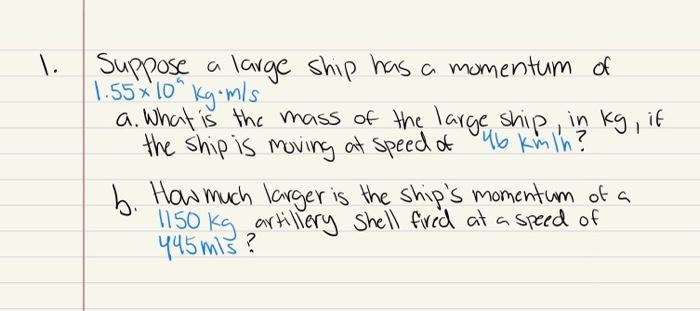 1. Suppose a large ship has a momentum of
1.55 x 10⁹ kg·m/s
a. What is the mass of the large ship, in kg, if
the ship is moving at speed of 46 km/h?
b. How much larger is the ship's momentum of a
1150 kg artillery shell fired at a speed of
445 m/s?